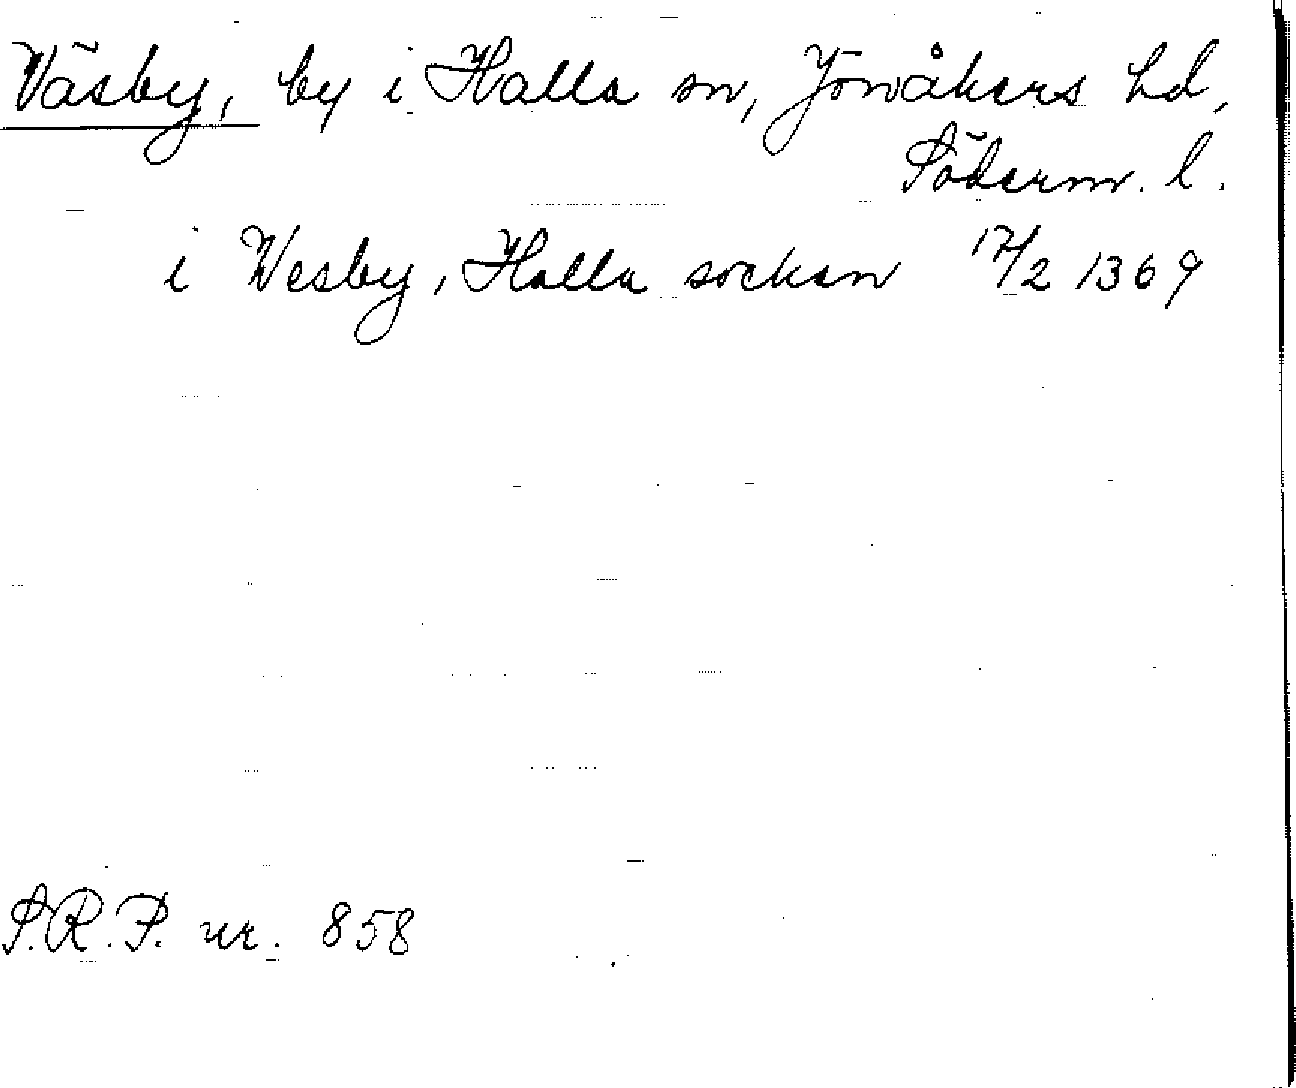 Väsby, by i Halla sn, Jönåkers hd,
Söderm. l.
i Wesby, Halla socken 17/2 1369
S.R.P. nr. 858